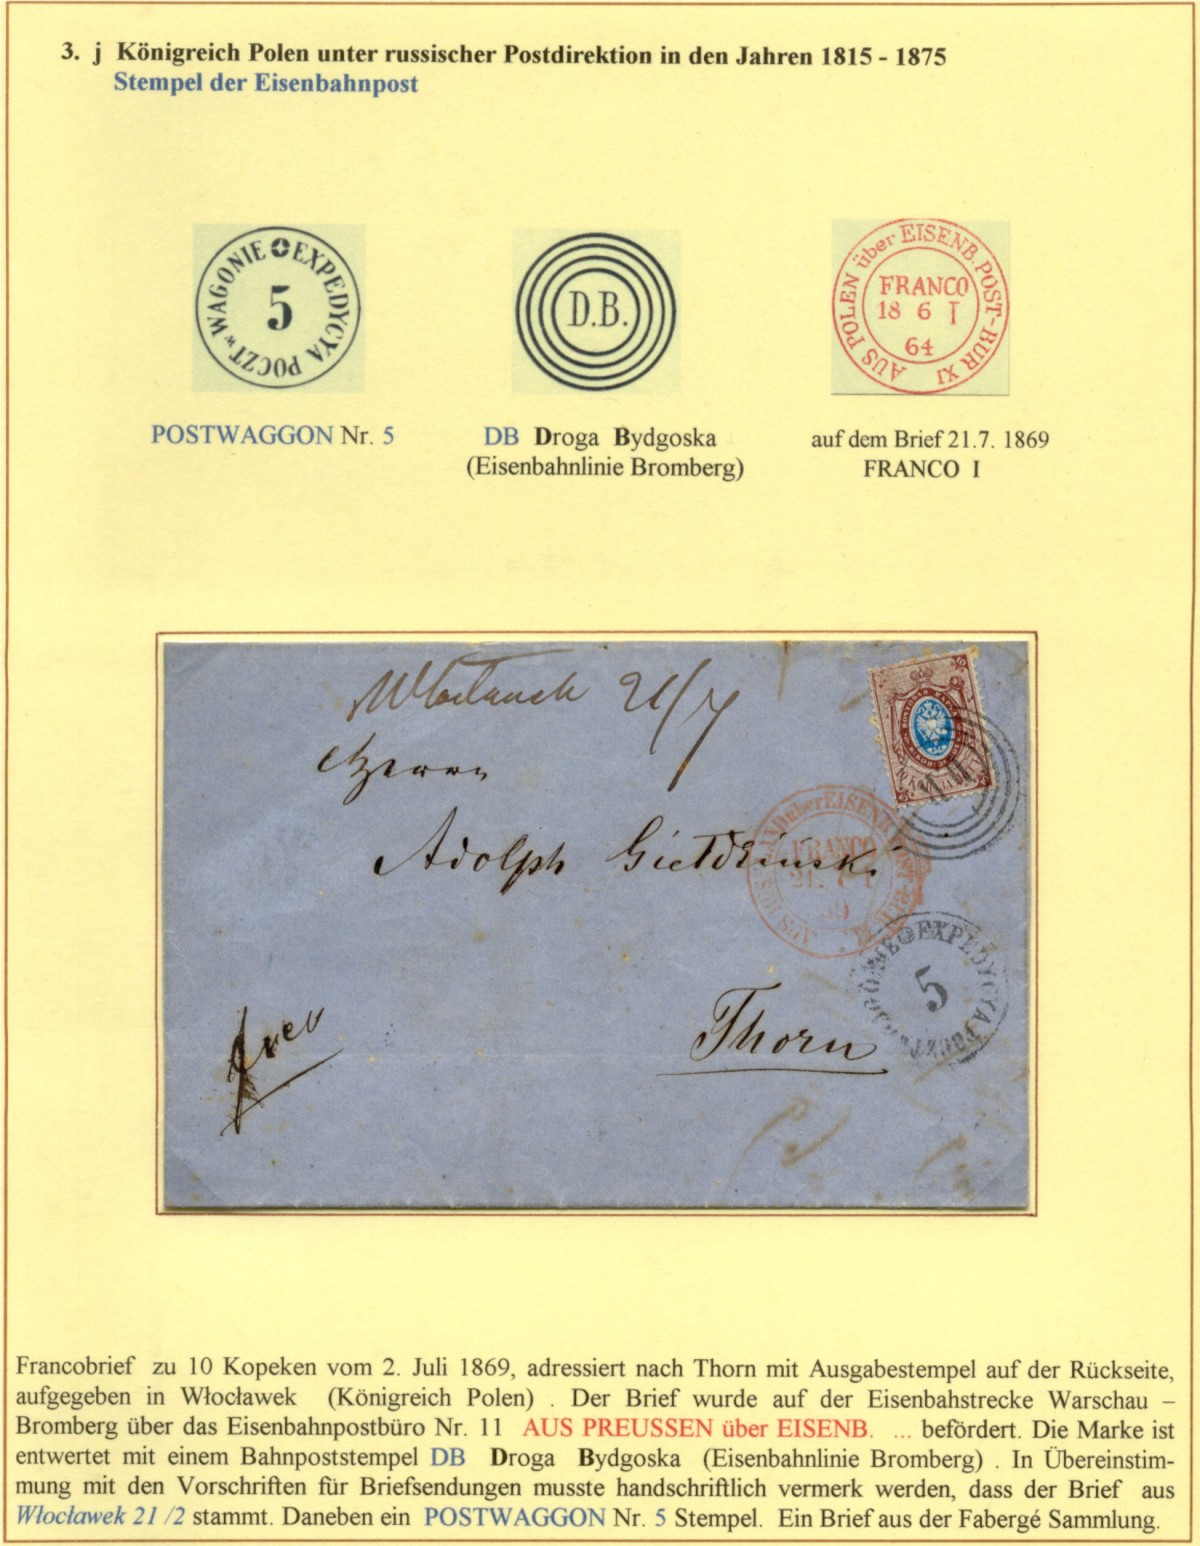 3. j Königreich Polen unter russischer Postdirektion in den Jahren 1815 - 1875
Stempel der Eisenbahnpost
EXPEDYCYA POCZT w WAGONIE
5
D.B.
AUS POLEN über EISENB. POST-BUR XI
FRANCO
18 6 I
64
POSTWAGGON Nr. 5
DB Droga Bydgoska
(Eisenbahnlinie Bromberg)
auf dem Brief 21.7. 1869
FRANCO I
Włocławek 21/7
Herrn
Adolph Gieldzinski
Thorn
franco
FRANCO
21. 7
69
EXPEDYCYA POCZT
5
Francobrief zu 10 Kopeken vom 2. Juli 1869, adressiert nach Thorn mit Ausgabestempel auf der Rückseite,
aufgegeben in Włocławek (Königreich Polen) . Der Brief wurde auf der Eisenbahstrecke Warschau –
Bromberg über das Eisenbahnpostbüro Nr. 11 AUS PREUSSEN über EISENB. ... befördert. Die Marke ist
entwertet mit einem Bahnpoststempel DB Droga Bydgoska (Eisenbahnlinie Bromberg) . In Übereinstim-
mung mit den Vorschriften für Briefsendungen musste handschriftlich vermerk werden, dass der Brief aus
Włocławek 21 /2 stammt. Daneben ein POSTWAGGON Nr. 5 Stempel. Ein Brief aus der Fabergé Sammlung.